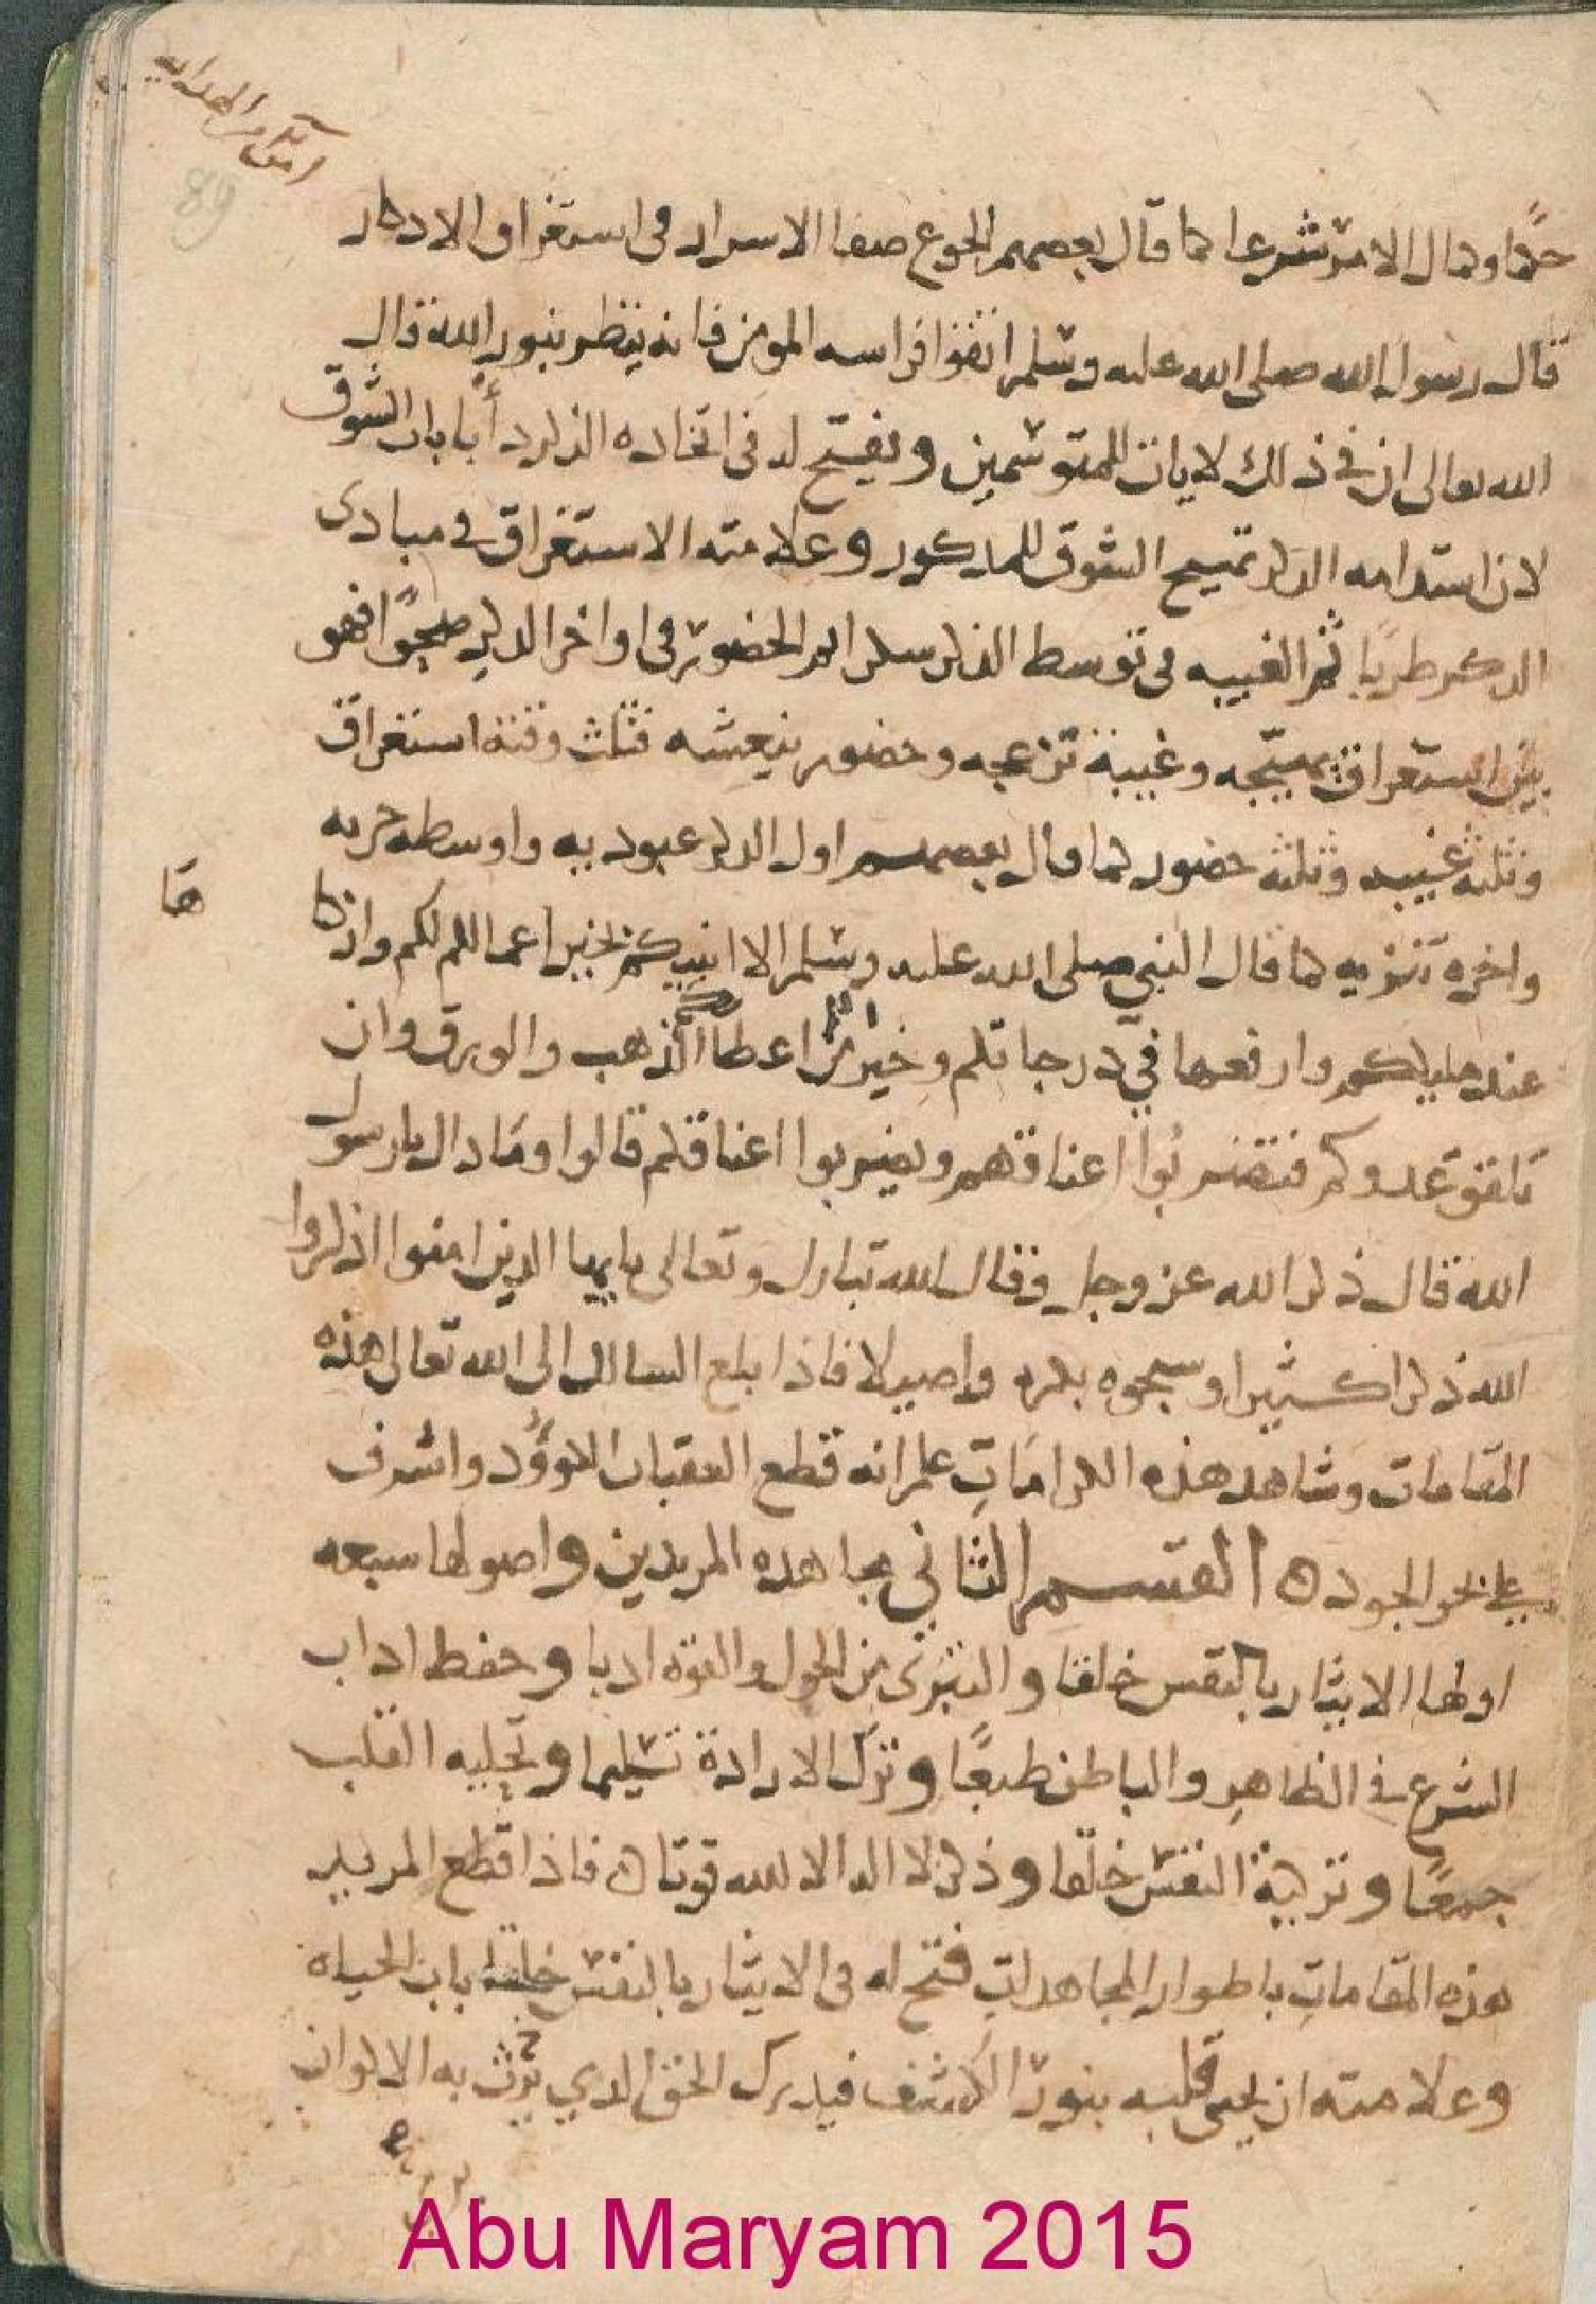 89
حكما وكمال الامر شرعا كما قال بعضهم الجوع صفا الاسرار فى استغراق الاذكار
قال رسول الله صلى الله عليه وسلم اتقوا فراسه المومن فانه ينظر بنور الله قال
الله تعالى ان في ذلك لايات للمتوسمين ويفتح له فى اتخاده الذكر دأبا باب الشوق
لان استدامه الذكر تهييج الشوق للمذكور وعلامته الاستغراق في مبادى
الذكر طربًا ثم الغيبه فى توسط الذكر سكرا ثم الحضور فى اواخر الذكر صحوًا فهو
بين استغراق يهيجه وغيبة تزعجه وحضور ينعشه فثلث وقته استغراق
وثلثه غيبه وثلثه حضور كما قال بعضهم اول الذكر عبوديه واوسطه حريه
واخره تنزيه كما قال النبي صلى الله عليه وسلم الا انبيكم بخير اعمالكم لكم وازكا
ها
عند مليككم وارفعها في درجاتكم وخير لكم من اعطا الذهب والورق وان
تلقو عدوكم فتضربوا اعناقهم ويضربوا اعناقكم قالوا وما ذاك يارسول
الله قال ذكر الله عز وجل وقال الله تبارك وتعالى يايها الذين امنوا اذكروا
الله ذكرا كثيرا وسبحوه بكره واصيلا فاذا بلغ السالك الى الله تعالى هذه
المقامات وشاهد هذه الكرامات علم انه قطع العقبات الكوؤد واشرف
على بحر الجود ه القسم الثاني مجاهده المريدين واصولها سبعه
اولها الايثار بالنفس خلقا والتبرى من الحول والقوه ادبا وحفظ اداب
الشرع في الظاهر والباطن طبعًا وترك الارادة تسليما وتخليه القلب
جمعًا وتزكية النفس خلقا وذكر لا اله الا الله قوتا ه فاذا قطع المريد
هذه المقامات باطوار المجاهدات فتح له فى الايثار بالنفس خلقا باب الحياه
وعلامته ان يحيى قلبه بنور الكشف فيدرك الحق الذي ترث به الاكوان
Abu Maryam 2015